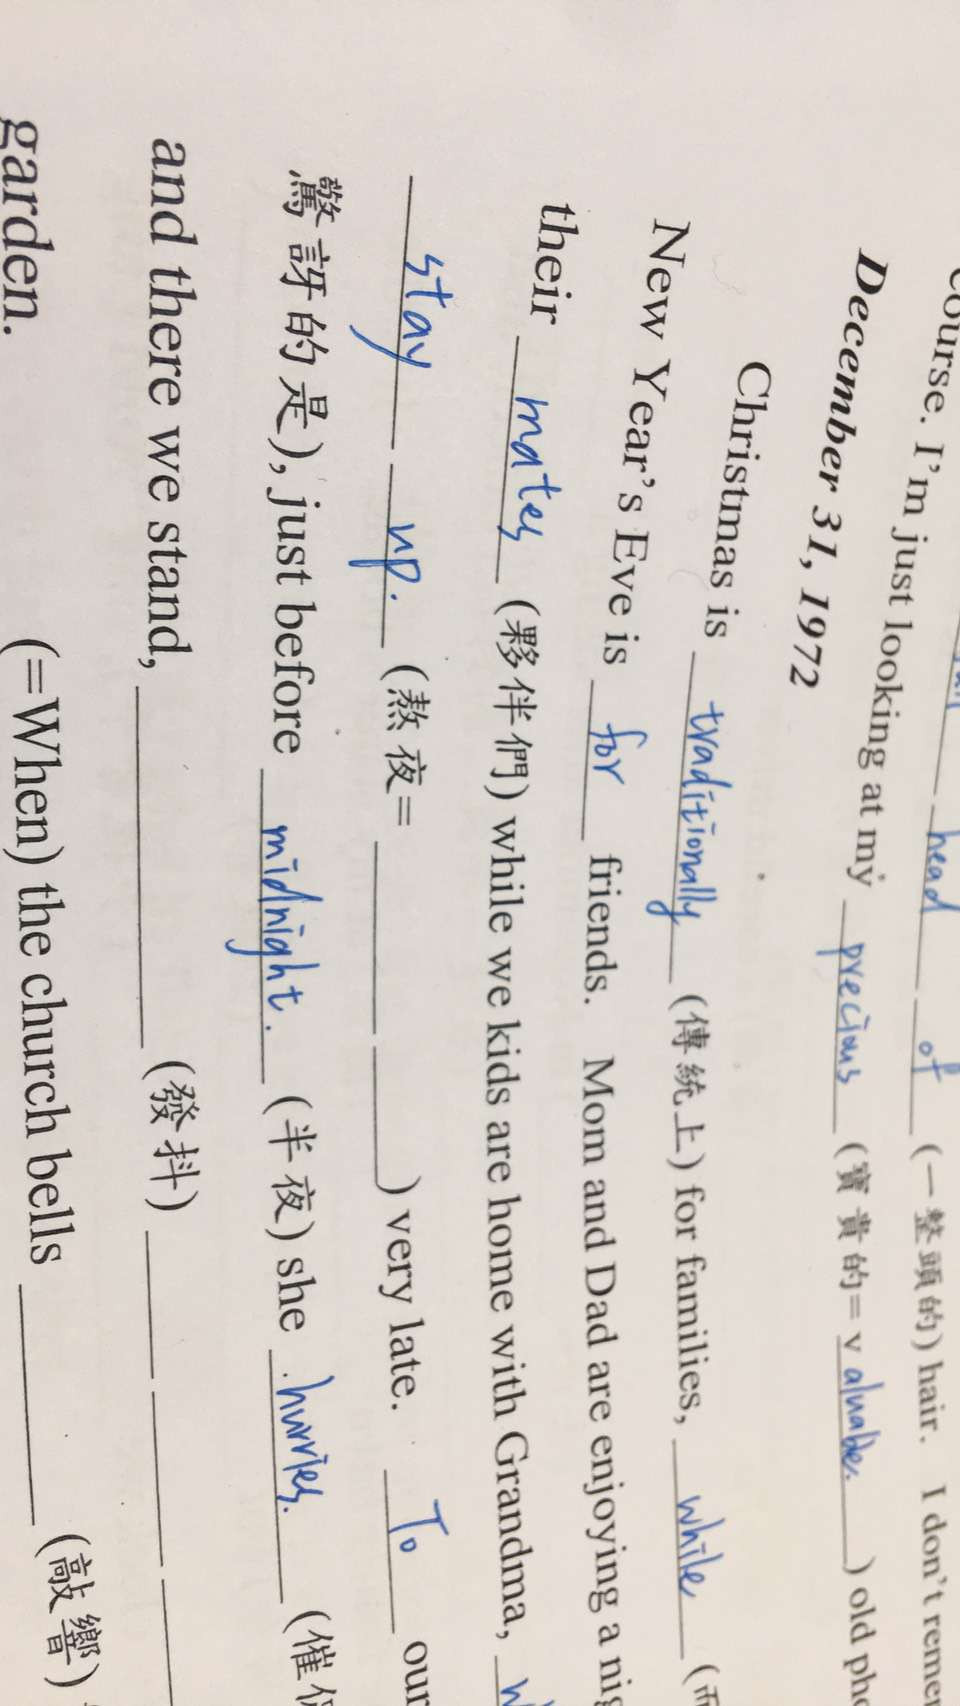 course. I'm just looking at my precious (寶貴的= valuable.) old
head of (一整頭的) hair. I don't
December 31, 1972
Christmas is traditionally (傳統上) for families, while
New Year's Eve is for friends. Mom and Dad are enjoying a
their mates (夥伴們) while we kids are home with Grandma,
stay up. (熬夜= ) very late. To our
驚訝的是), just before midnight. (半夜) she hurries.
and there we stand, (發抖)
garden. (=When) the church bells (敲響)